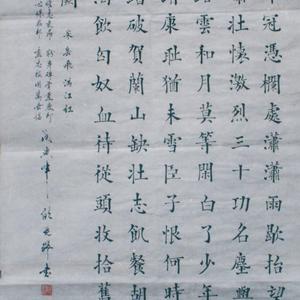 冠憑欄處瀟瀟雨歇抬望
壯懷激烈三十功名塵與
雲和月莫等閒白了少年
康恥猶未雪臣子恨何時
破賀蘭山缺壯志飢餐胡
飲匈奴血待從頭收拾舊
闕
宋岳飛滿江紅